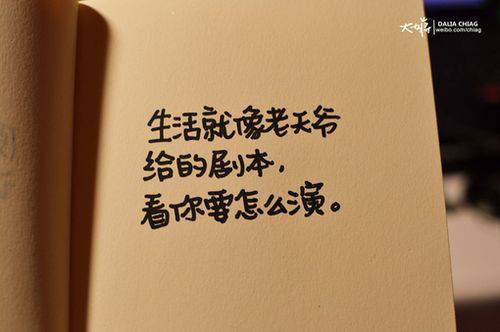 DALIA CHIAG
weibo.com/chiag
生活就像老天爷
给的剧本,
看你要怎么演。